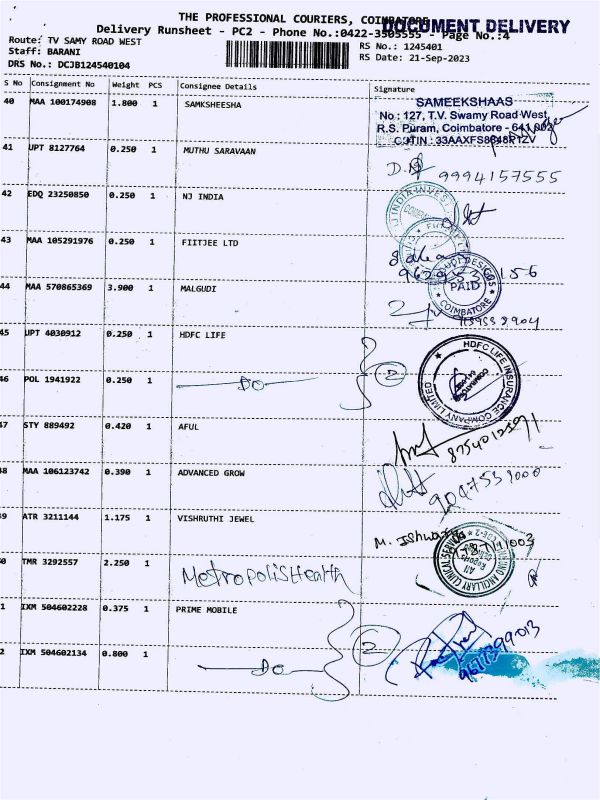 THE PROFESSIONAL COURIERS, COIMBATORE
DOCUMENT DELIVERY
Delivery Runsheet - PC2 - Phone No.:0422-3505555 - Page No.:4
Route: TV SAMY ROAD WEST
RS No.: 1245401
Staff: BARANI
RS Date: 21-Sep-2023
DRS No.: DCJB124540104
S No Consignment No Weight PCS Consignee Details Signature
40 MAA 100174908 1.800 1 SAMKSHEESHA
SAMEEKSHAAS
No : 127, T.V. Swamy Road West
R.S. Puram, Coimbatore - 641 002
41 UPT 8127764 0.250 1 MUTHU SARAVAAN
9994157555
42 EDQ 23250850 0.250 1 NJ INDIA
43 MAA 105291976 0.250 1 FIITJEE LTD
44 MAA 570865369 3.900 1 MALGUDI
PAID
COIMBATORE
45 UPT 4030912 0.250 1 HDFC LIFE
2
HDFC LIFE INSURANCE COMPANY LIMITED
46 POL 1941922 0.250 1 DO
47 STY 889492 0.420 1 AFUL
48 MAA 106123742 0.390 1 ADVANCED GROW
49 ATR 3211144 1.175 1 VISHRUTHI JEWEL
0 TMR 3292557 2.250 1 MetropolisHealth
1 IXM 504602228 0.375 1 PRIME MOBILE
2
2 IXM 504602134 0.800 1 DO